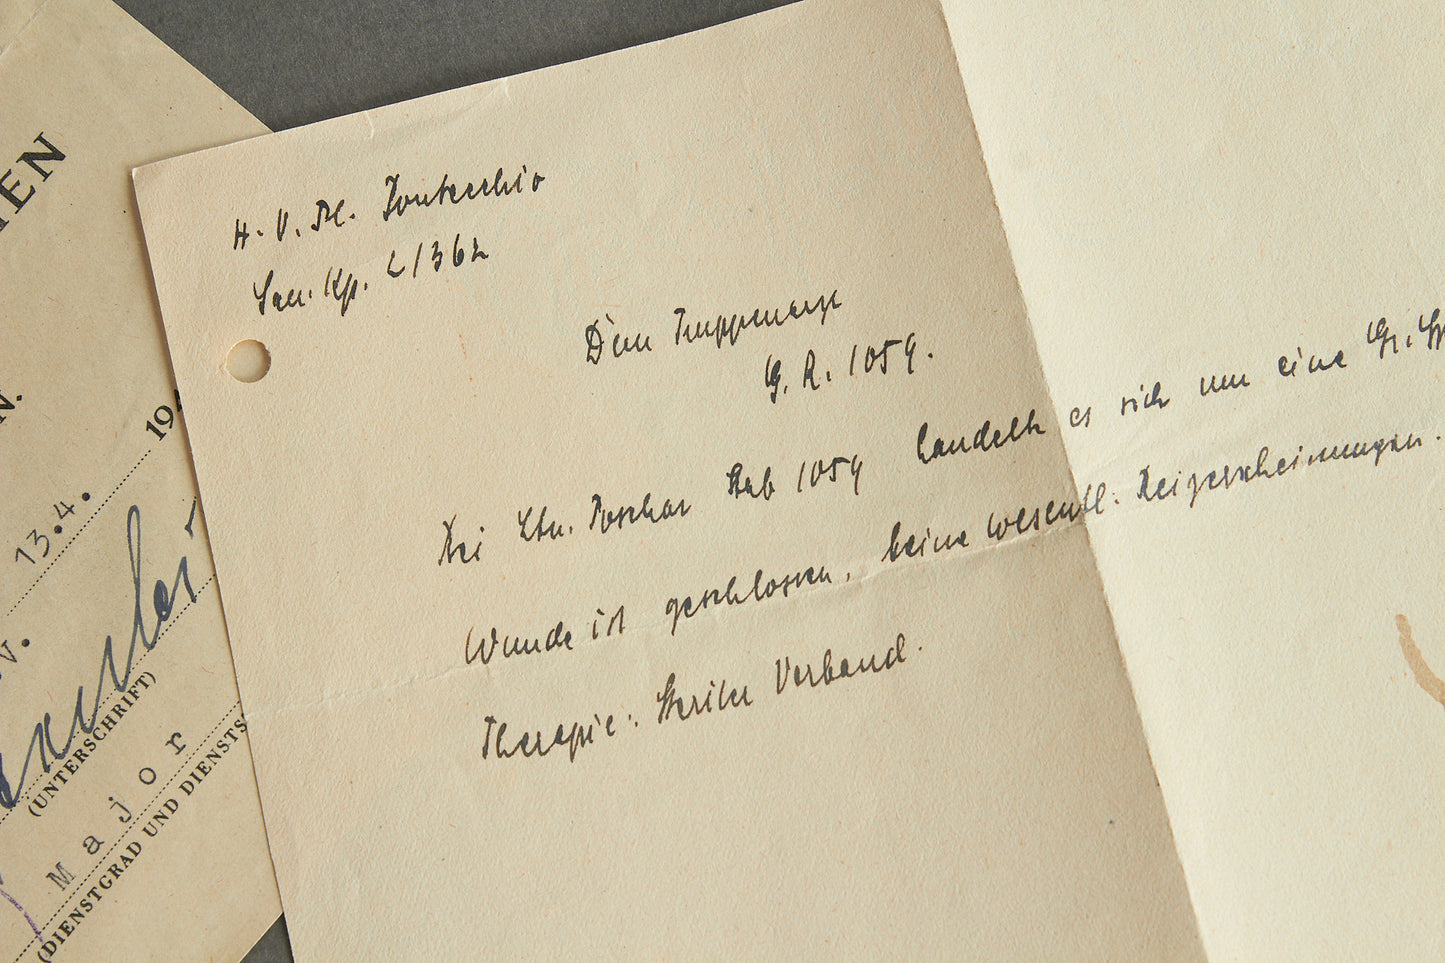 H. V. Pl. Pontecchio
San. Kp. 2/362
Dem Truppenarzt
G. R. 1059.
Bei Ltn. Poschar Stab 1059 handelt es sich um eine Gr. Sp
Wunde ist geschlossen, keine wesentl. Reizerscheinungen.
Therapie: Steriler Verband.
IEN
N.
194
13.4.
v.
(UNTERSCHRIFT)
Major
(DIENSTGRAD UND DIENSTS